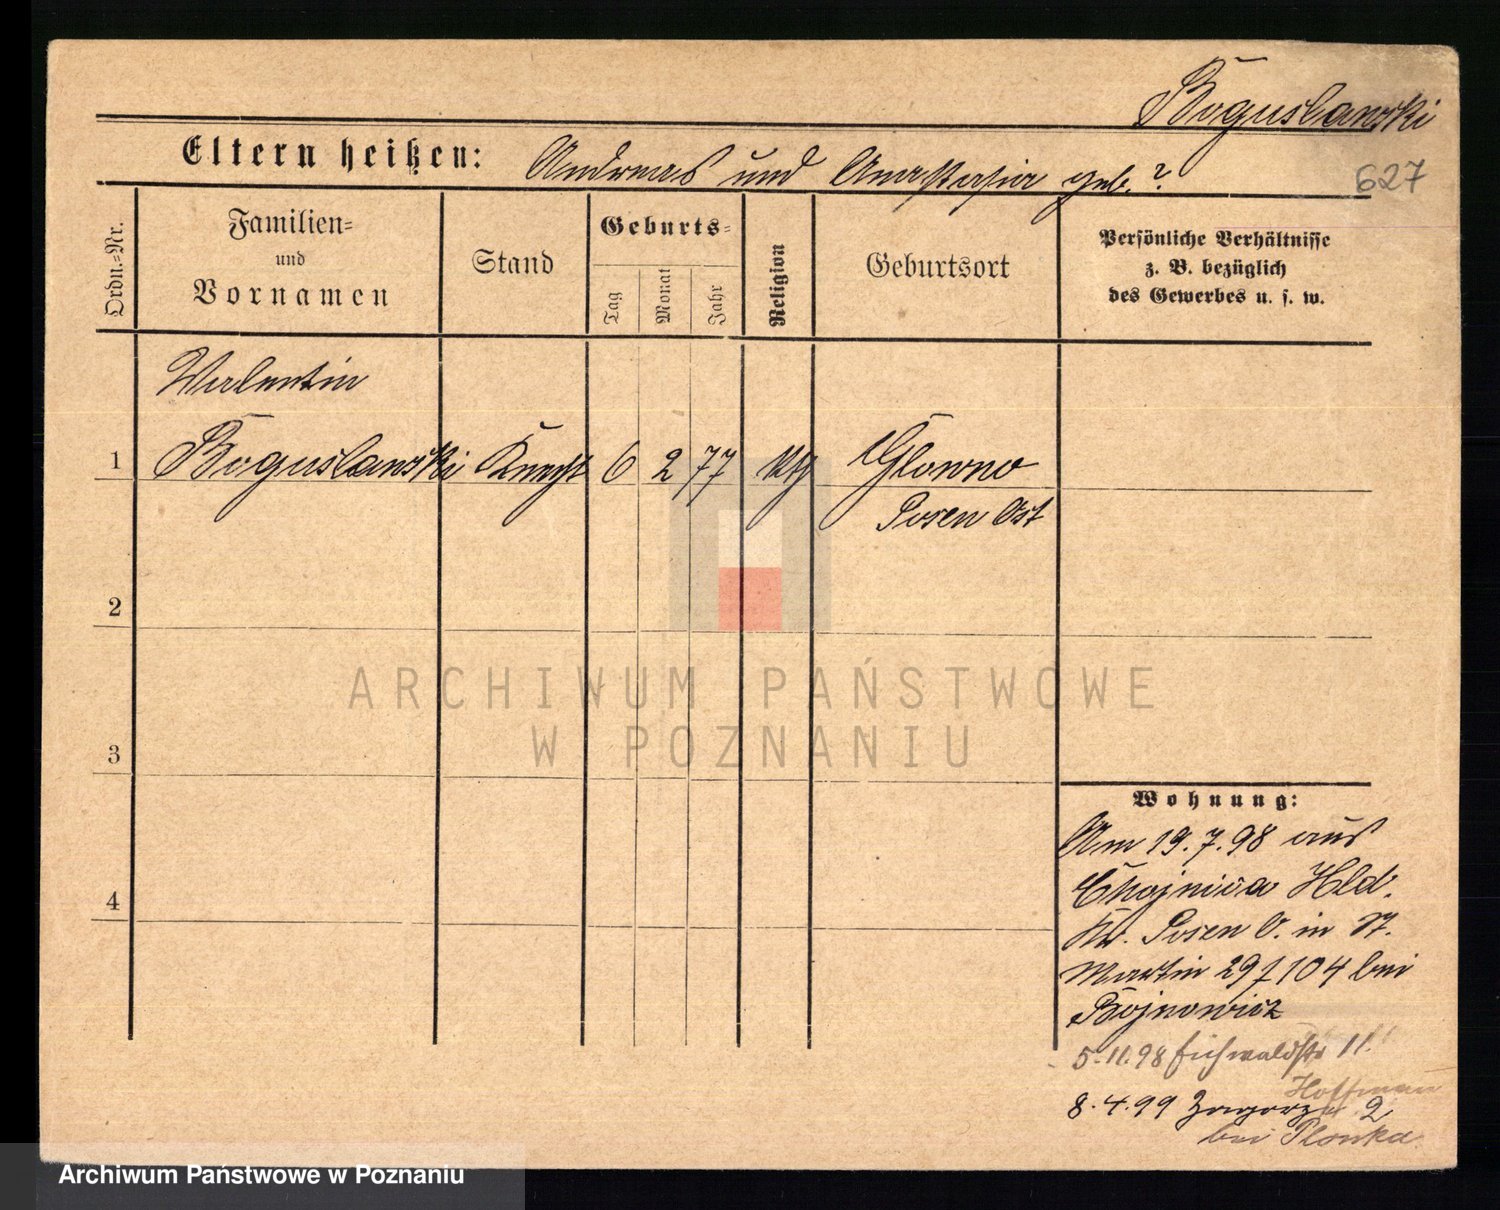 Boguslawski
Eltern heißen: Andreas und Anastasia geb. ?
627
Ordn.=Nr.
Familien=
und
Vornamen
Stand
Geburts=
Tag
Monat
Jahr
Religion
Geburtsort
Persönliche Verhältnisse
z. B. bezüglich
des Gewerbes u. s. w.
Valentin
1 Boguslawski Knecht 6 2 77 kth Glowno
Posen Ost
2
3
4
Wohnung:
Am 19.7.98 aus
Chojnica Hld.
Kr. Posen O. in St.
Martin 29/104 bei
Bojnowicz
5.11.98 Eichwaldstr 11.
Hoffmann
8.4.99 Zagorze 2
bei Plonka
ARCHIWUM PAŃSTWOWE
W POZNANIU
Archiwum Państwowe w Poznaniu